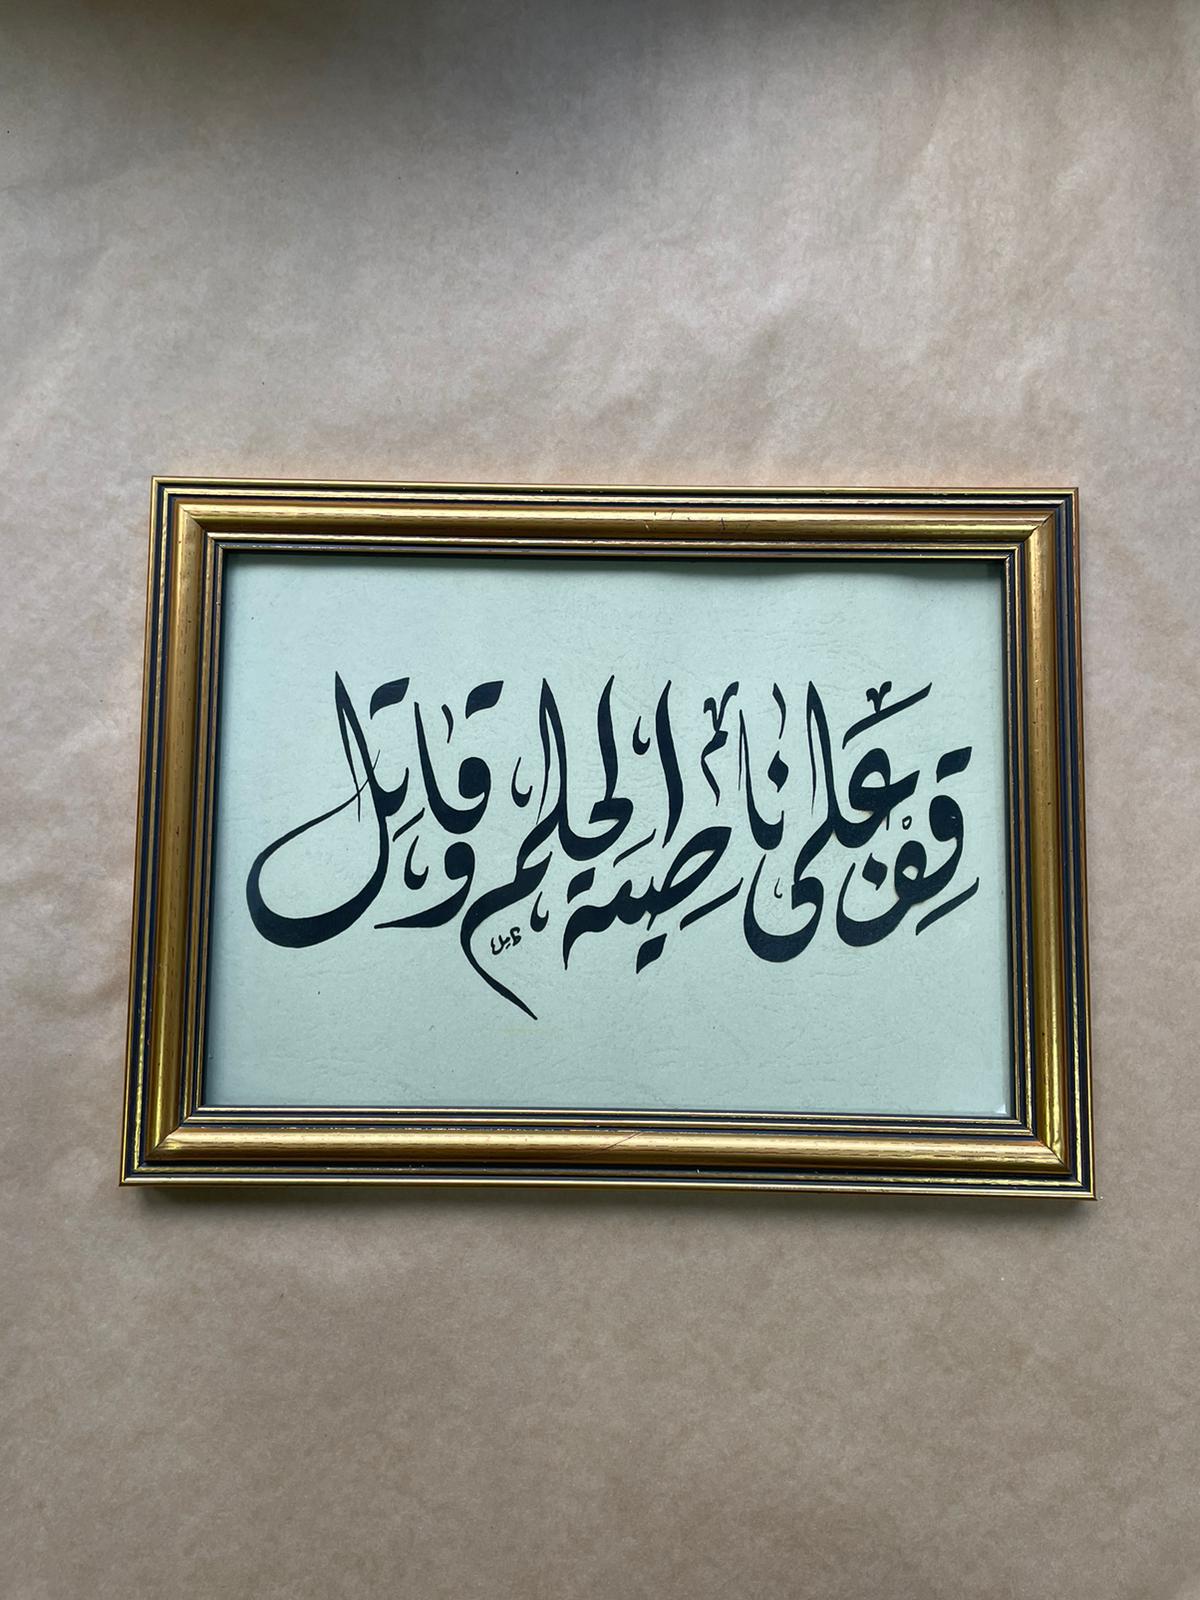 قف على ناصية الحلم وقاتل